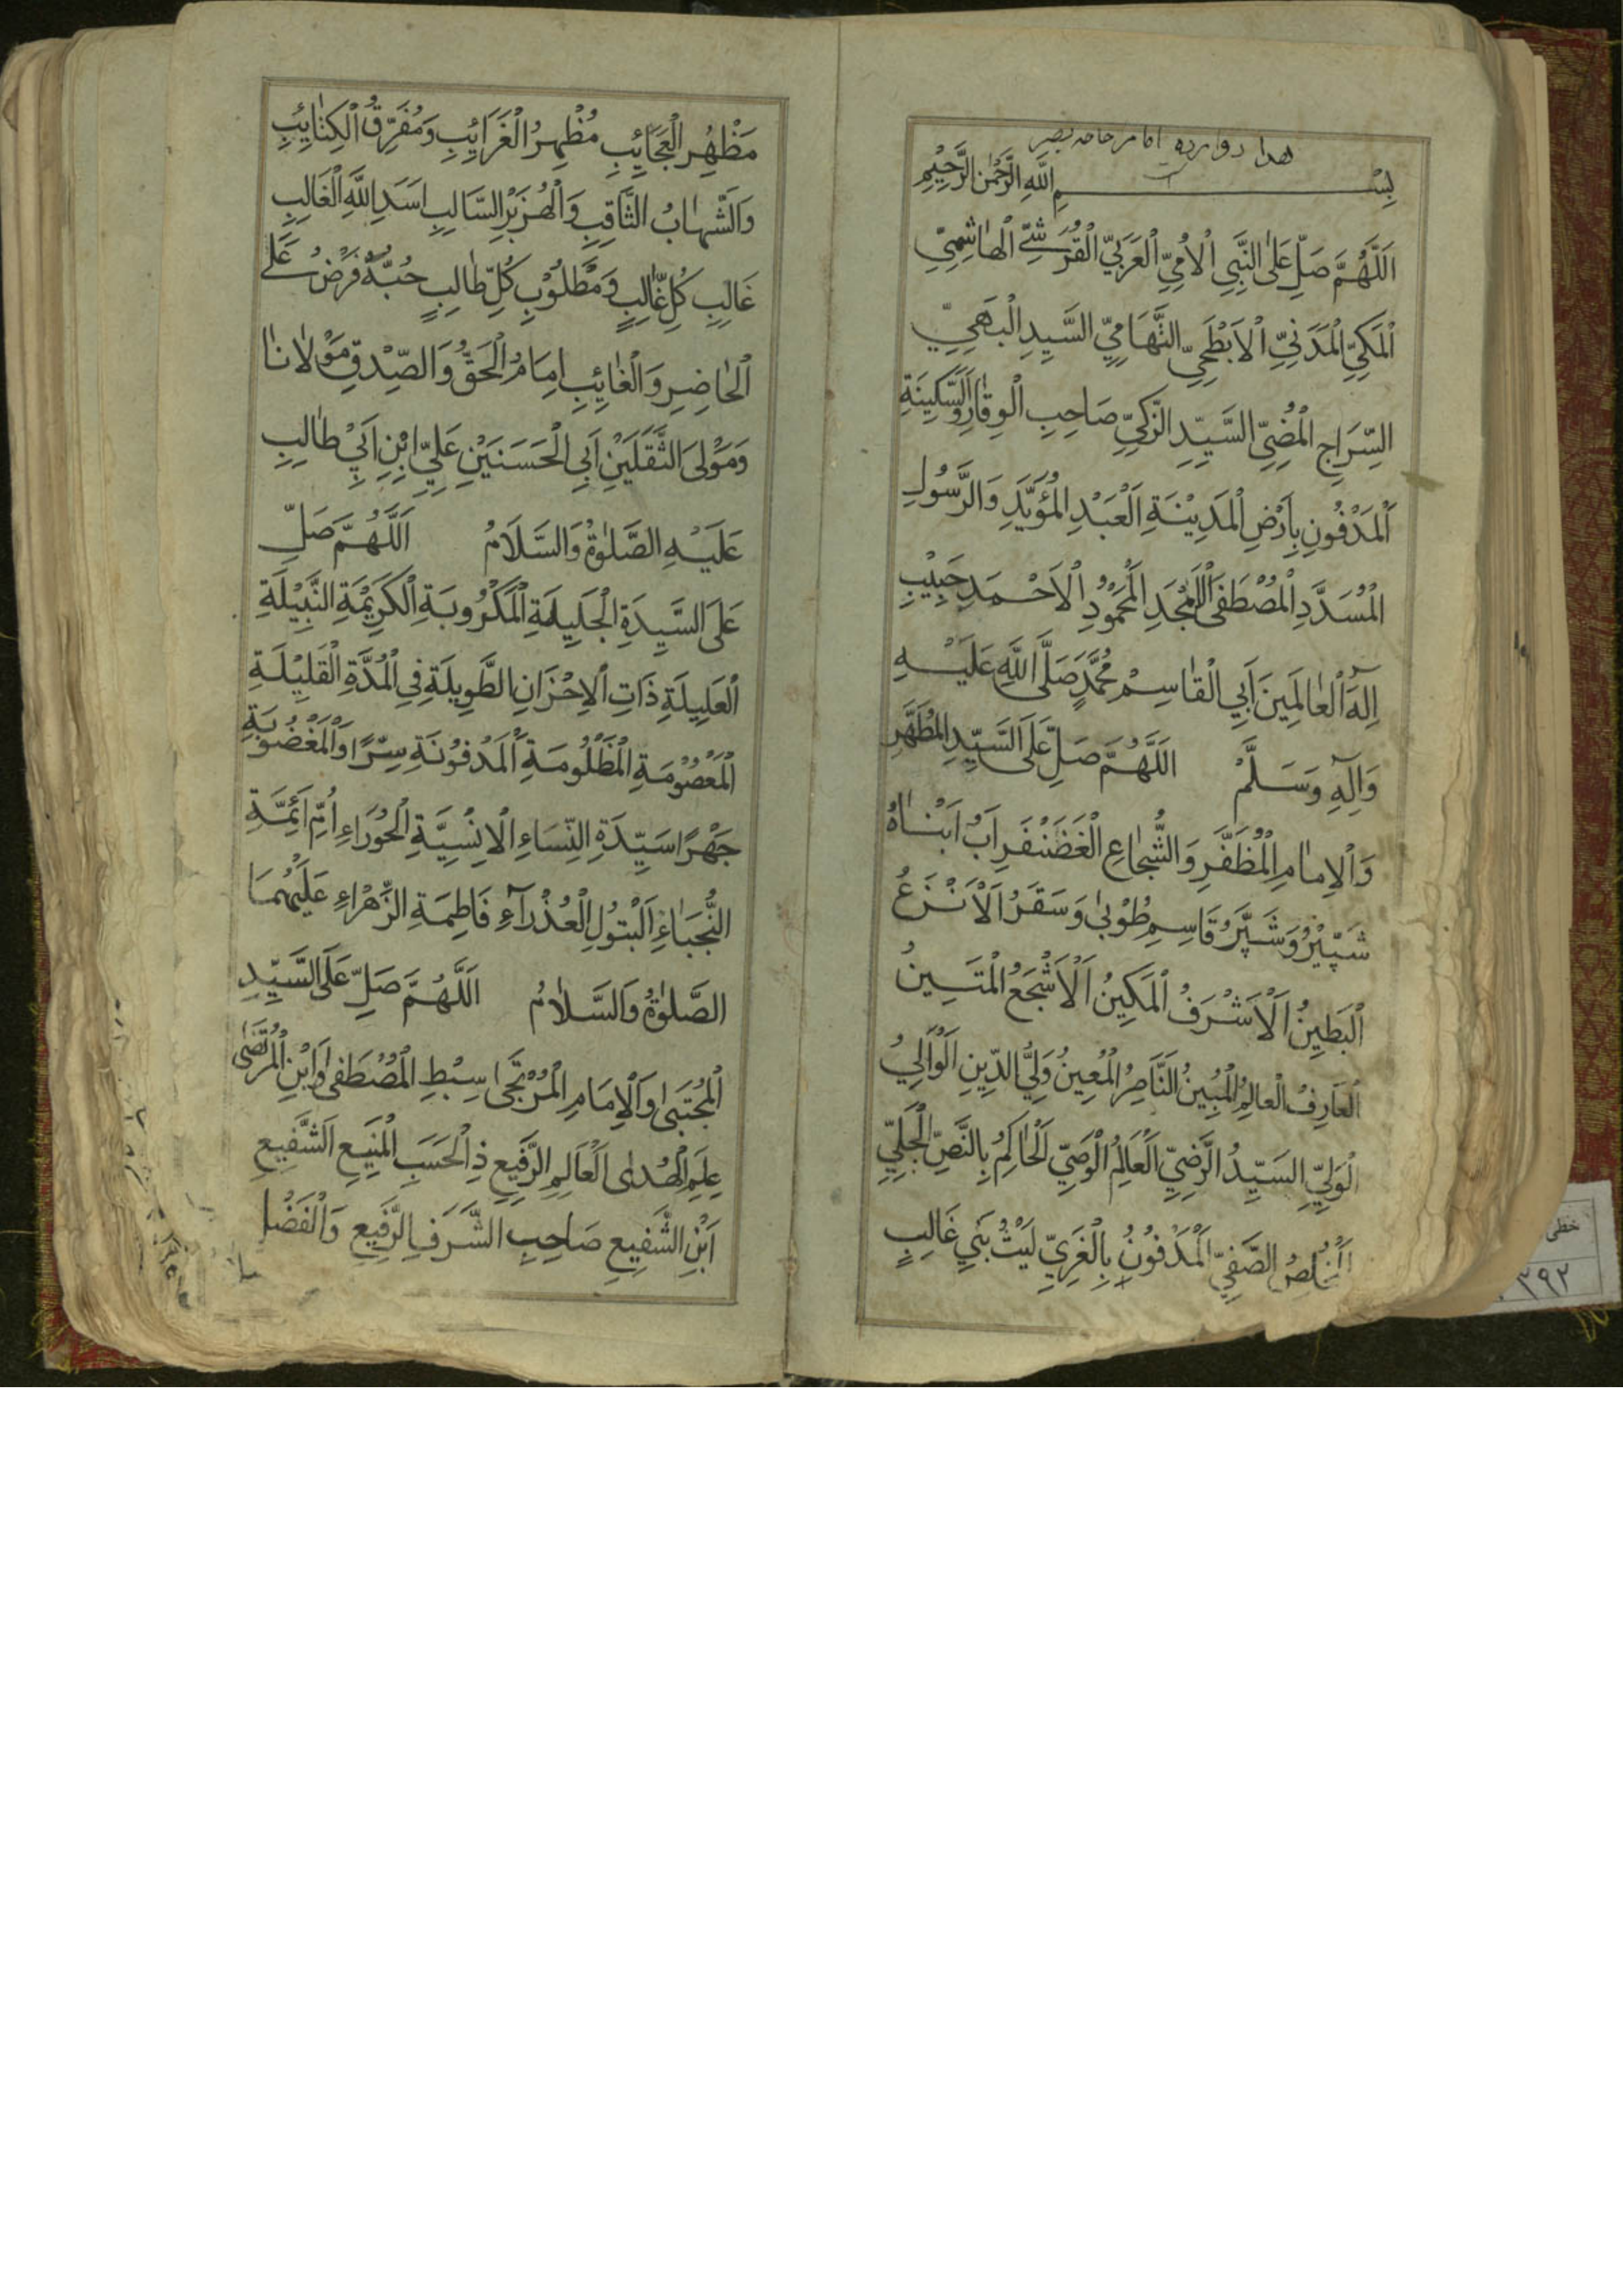 هذا دوازده امام خواجه نصیر
بِسْمِ اللهِ الرَّحْمٰنِ الرَّحِيْمِ
اَللّٰهُمَّ صَلِّ عَلَى النَّبِيِ الْاُمِيِّ الْعَرَبِيِّ الْقُرَشِيِّ الْهَاشِمِيِّ
الْمَكِّيِّ الْمَدَنِيِّ الْاَبْطَحِيِّ التَّهَامِيِّ السَّيِدِ الْبَهِيِّ
السِّرَاجِ الْمُضِيِّ السَّيِّدِ الزَّكِيِّ صَاحِبِ الْوِقَارِ وَالسَّكِينَةِ
الْمَدْفُونِ بِاَرْضِ الْمَدِيْنَةِ اَلْعَبْدِ الْمُؤَيَّدِ وَالرَّسُولِ
الْمُسَدَّدِ الْمُصْطَفَى الْاَمْجَدِ الْمَحْمُوْدِ الْاَحْمَدِ حَبِيْبِ
اِلٰهِ الْعَالَمِينَ اَبِي الْقَاسِمْ مُحَمَّدٍ صَلَّى اللهِ عَلَيْهِ
وَاٰلِهِ وَسَلَّمْ اَللّٰهُمَّ صَلِّ عَلَى السَّيِّدِ الْمُطَهَّرِ
وَالْاِمَامِ الْمُظَفَّرِ وَالشُّجَاعِ الْغَضَنْفَرِ اَبُ اَبْنَاهُ
شَپِّيْرُ وَشَپَّرُ قَاسِمِ طُوْبٰى وَسَقَرُ اَلْاَنْزَعُ
الْبَطِينُ اَلْاَشْرَفُ الْمَكِينُ اَلْاَشْجَعُ الْمَتَينُ
الْعَارِفُ الْعَالِمُ الْمُبِينُ النَّاصِرُ الْمُعِينُ وَلِيُّ الدِّينِ اَلْوَالِيُ
الْوَلِيِّ السَيِّدُ الرَّضِيِّ الْعَالِمُ الْوَصِيِّ الْحَاكِمُ بِالنَّصِّ الْجَلِيِّ
اَلْمُخْلِصُ الصَّفِيِّ الْمَدْفُوْنُ بِالْغَرِيِّ لَيْثُ بَنِي غَالِبٍ
مَظْهِرِ الْعَجَائِبِ مُظْهِرُ الْغَرَائِبِ وَمُفَرِّقُ الْكِتَائِبِ
وَالشَّهَابُ الثَّاقِبِ وَالْهُزَبْرِ السَّالِبِ اَسَدِ اللهِ الْغَالِبِ
غَالِبِ كُلِّ غَالِبٍ وَمَطْلُوْبِ كُلِّ طَالِبٍ حُبُّهٗ فَرْضٌ عَلَى
الْحَاضِرِ وَالْغَائِبِ اِمَامُ الْحَقِّ وَالصِّدْقِ مَوْلَانَا
وَمَوْلَى الثَّقَلَيْنِ اَبِي الْحَسَنَيْنِ عَلِيِّ ابْنِ اَبِيْ طَالِبِ
عَلَيْهِ الصَّلٰوةُ وَالسَّلَامُ اَللّٰهُمَّ صَلِّ
عَلَى السَّيِدَةِ الْجَلِيلَةِ الْمَكْرُوبَةِ الْكَرِيْمَةِ النَّبِيْلَةِ
الْعَلِيلَةِ ذَاتِ الْاِحْزَانِ الطَّوِيلَةِ فِي الْمُدَّةِ الْقَلِيْلَةِ
الْمَعْصُوْمَةِ الْمَظْلُومَةِ الْمَدْفُوْنَةِ سِرًّا وَالْمَغْضُوبَةِ
جَهْرًا سَيِّدَةِ النِّسَاءِ الْاِنْسِيَّةِ الْحَوْرَاءِ اُمِّ اَئِمَّةِ
النُّجَبَاءِ اَلْبَتُولِ الْعُذْرَآءِ فَاطِمَةِ الزَّهْرَاءِ عَلَيْهُمَا
الصَّلٰوةُ وَالسَّلَامُ اَللّٰهُمَّ صَلِّ عَلَى السَّيِّدِ
الْمُجْتَبىٰ وَالْاِمَامِ الْمُرْتَجىٰ سِبْطِ الْمُصْطَفىٰ وَابْنِ الْمُرْتَضىٰ
عِلَمِ الْهُدىٰ الْعَالِمِ الرَّفِيعِ ذِالْحَسَبِ الْمَنِيعِ اَلشَّفِيعِ
اَبْنِ الشَّفِيعِ صَاحِبِ الشَّرَفِ الرَّفِيعِ وَالْفَضْلِ
خطی
٣٩٢